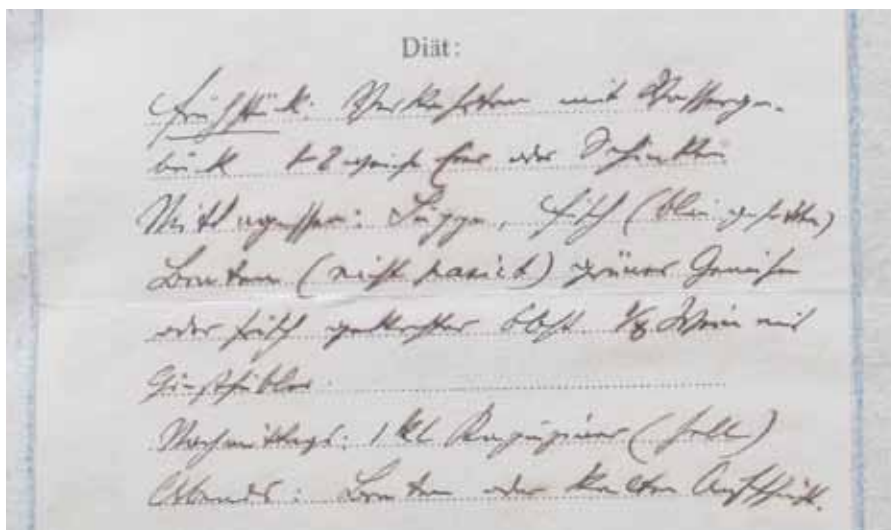 Diät:
Frühstück: Verkehrten mit Wasserge-
bäck 1-2 weiche Eier oder Schinken
Mittagessen: Suppe, Fisch (blau gesotten)
Braten (nicht paniert) grünes Gemüse
oder frisch gekochtes Obst. 1/8 Wein mit
Giesshübler.
Nachmittags: 1 kl Kapuziner (hell)
Abends: Braten oder kalten Aufschnitt.